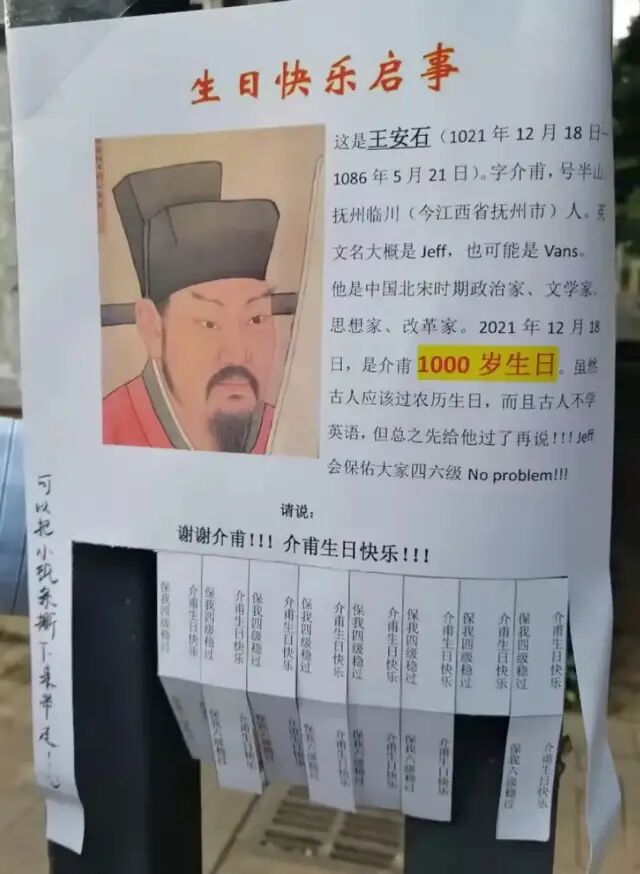 生日快乐启事
这是王安石（1021 年 12 月 18 日—
1086 年 5 月 21 日）。字介甫，号半山，
抚州临川（今江西省抚州市）人。英
文名大概是 Jeff，也可能是 Vans。
他是中国北宋时期政治家、文学家、
思想家、改革家。2021 年 12 月 18
日，是介甫 1000 岁生日。虽然
古人应该过农历生日，而且古人不学
英语，但总之先给他过了再说!!! Jeff
会保佑大家四六级 No problem!!!
请说：
谢谢介甫!!! 介甫生日快乐!!!
可以把小纸条撕下来带走！
保我四级稳过
介甫生日快乐
保我四级稳过
介甫生日快乐
保我四级稳过
介甫生日快乐
保我四级稳过
介甫生日快乐
保我四级稳过
介甫生日快乐
保我四级稳过
介甫生日快乐
保我四级稳过
介甫生日快乐
保我四级稳过
介甫生日快乐
保我六级稳过
介甫生日快乐
保我六级稳过
介甫生日快乐
保我六级稳过
介甫生日快乐
保我六级稳过
介甫生日快乐
保我六级稳过
介甫生日快乐
保我六级稳过
介甫生日快乐